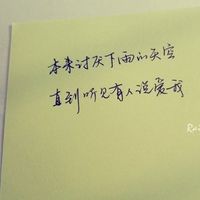 本来讨厌下雨的天空
直到听见有人说爱我